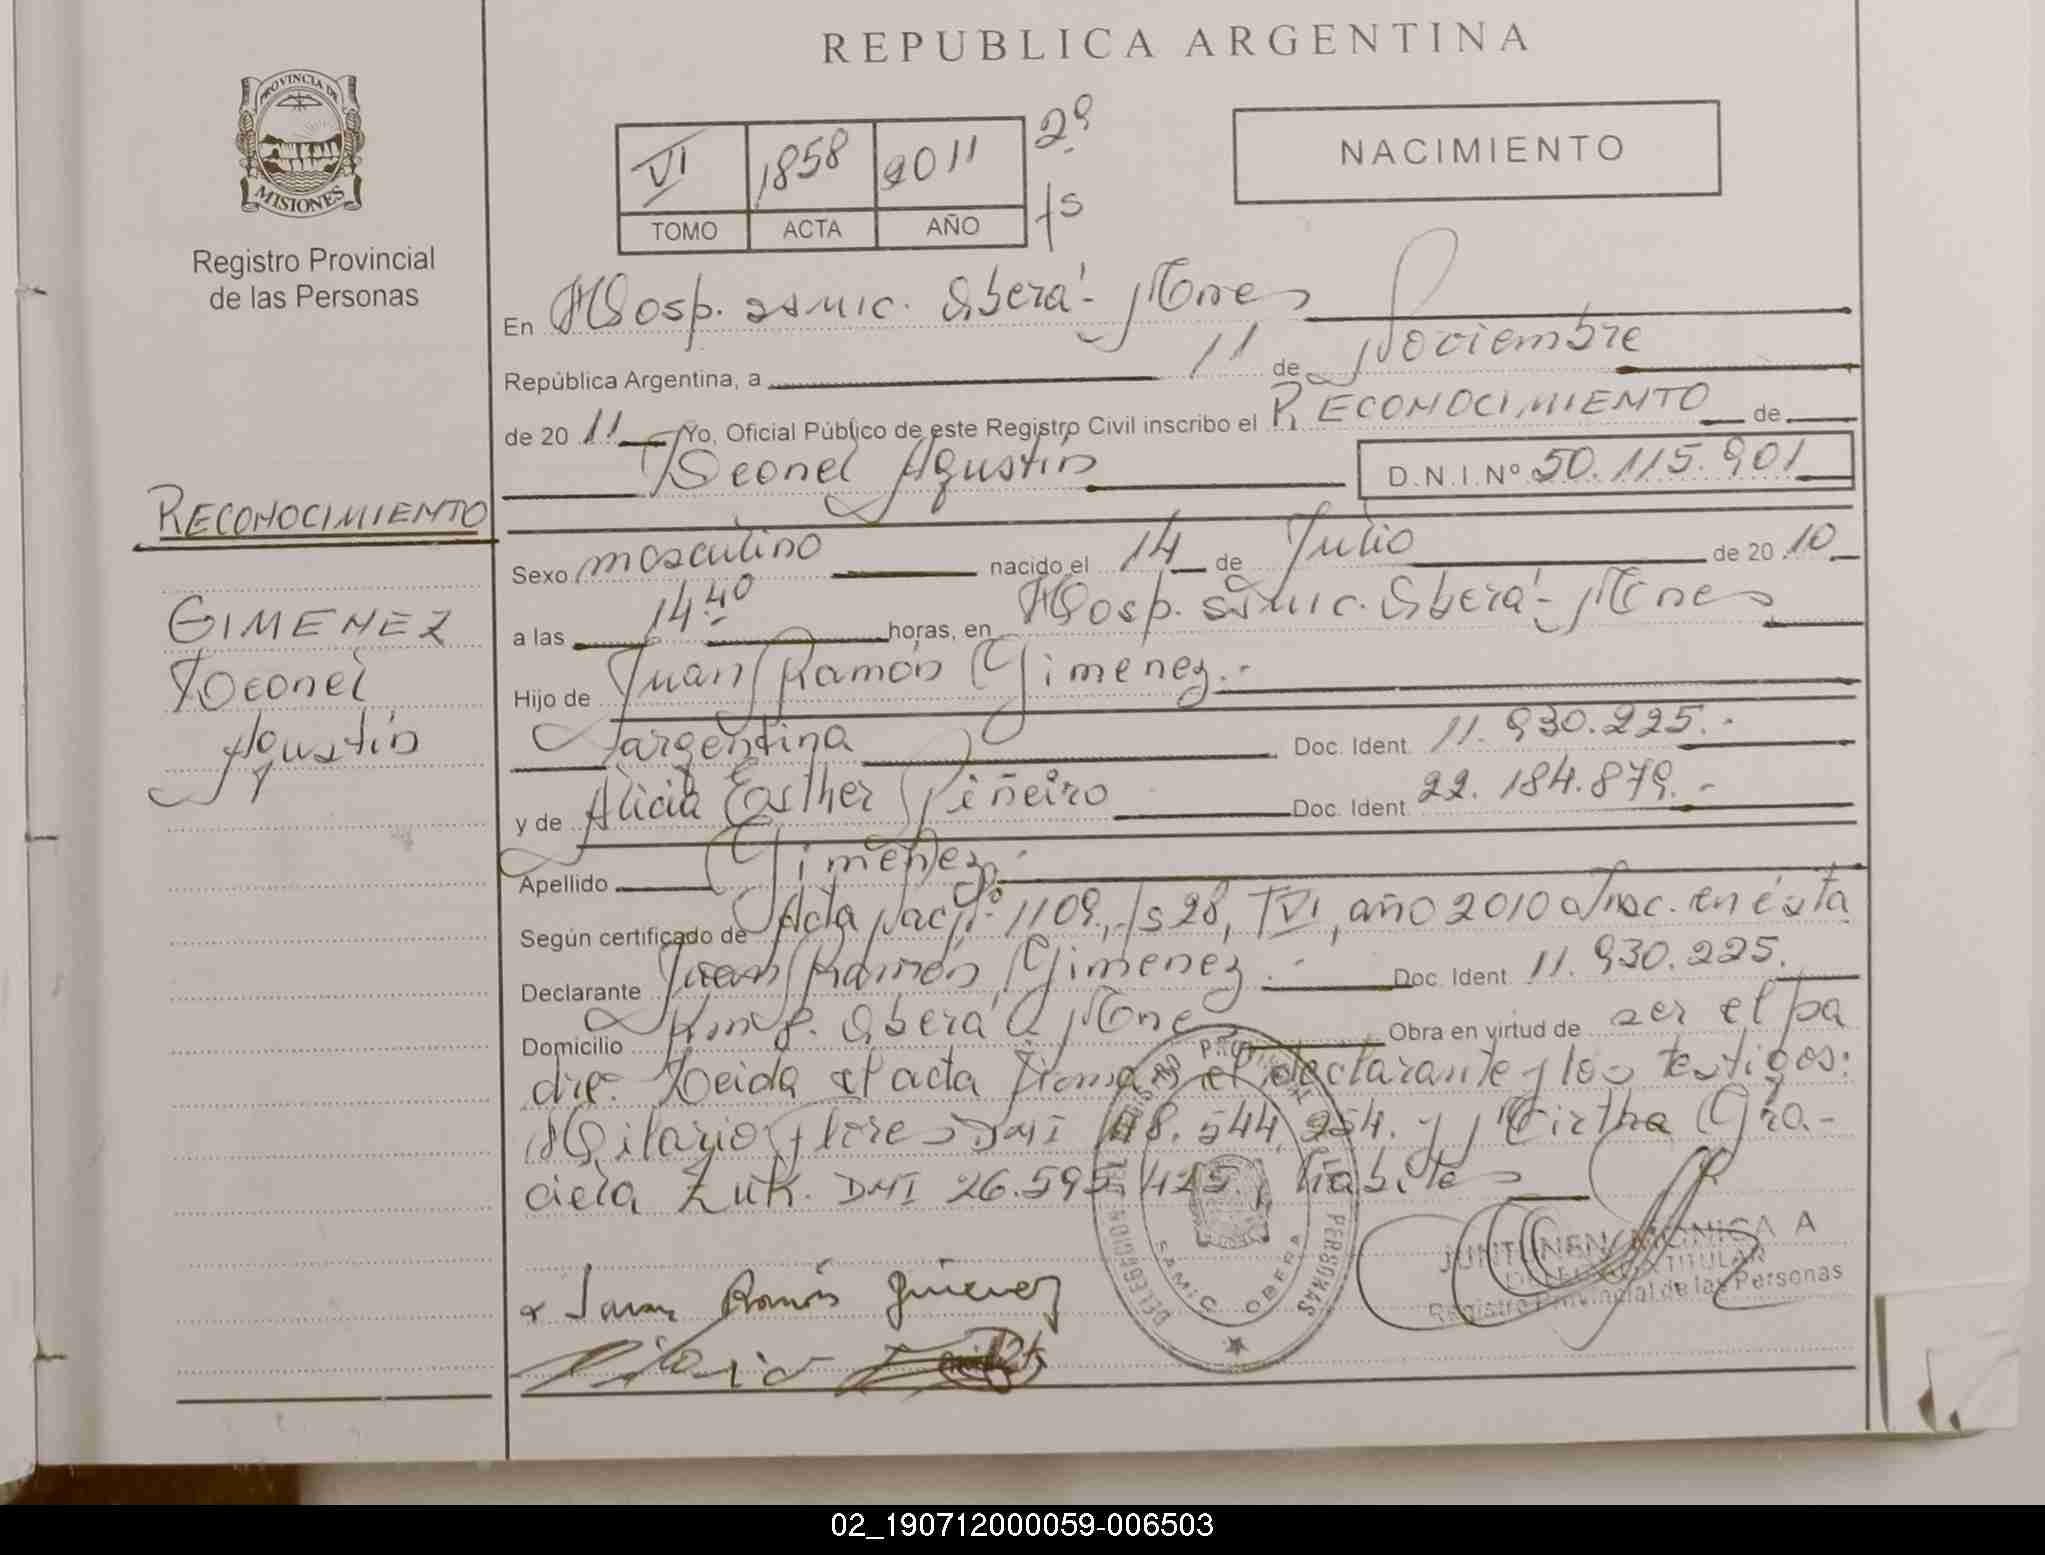 REPUBLICA ARGENTINA
PROVINCIA DE
MISIONES
Registro Provincial
de las Personas
VI 1858 2011 2º
TOMO ACTA AÑO fs
NACIMIENTO
En Hosp. samic. Oberá - Mnes
República Argentina, a 11 de Noviembre
de 20 11 Yo, Oficial Público de este Registro Civil inscribo el RECONOCIMIENTO de
Leonel Agustin D.N.I. Nº 50.115.901
RECONOCIMIENTO
GIMENEZ
Leonel
Agustín
Sexo masculino nacido el 14 de Julio de 20 10
a las 14.40 horas, en Hosp. samic. Oberá - Mnes
Hijo de Juan Ramón Gimenez.-
argentina Doc. Ident. 11.930.225.-
y de Alicia Esther Piñeiro Doc. Ident. 22.184.879.-
Apellido Gimenez.-
Según certificado de Acta Nac. Nº 1109, fs 28, TVI, año 2010 Insc. en ésta
Declarante Juan Ramón Gimenez.- Doc. Ident 11.930.225.
Domicilio Km 8. Oberá Mnes Obra en virtud de ser el pa
dre. Leida el acta firman el declarante y los testigos:
Hilario Flores DNI 18.544.254. y Mirtha Gra.-
ciela Zuk. DNI 26.595.425., hábiles
Juan Ramón Gimenez
Hilario
DELEGACION
PERSONAS
SAMIC OBERA
JUNTUNEN MONICA A
TITULAR
Registro Provincial de las Personas
02_190712000059-006503